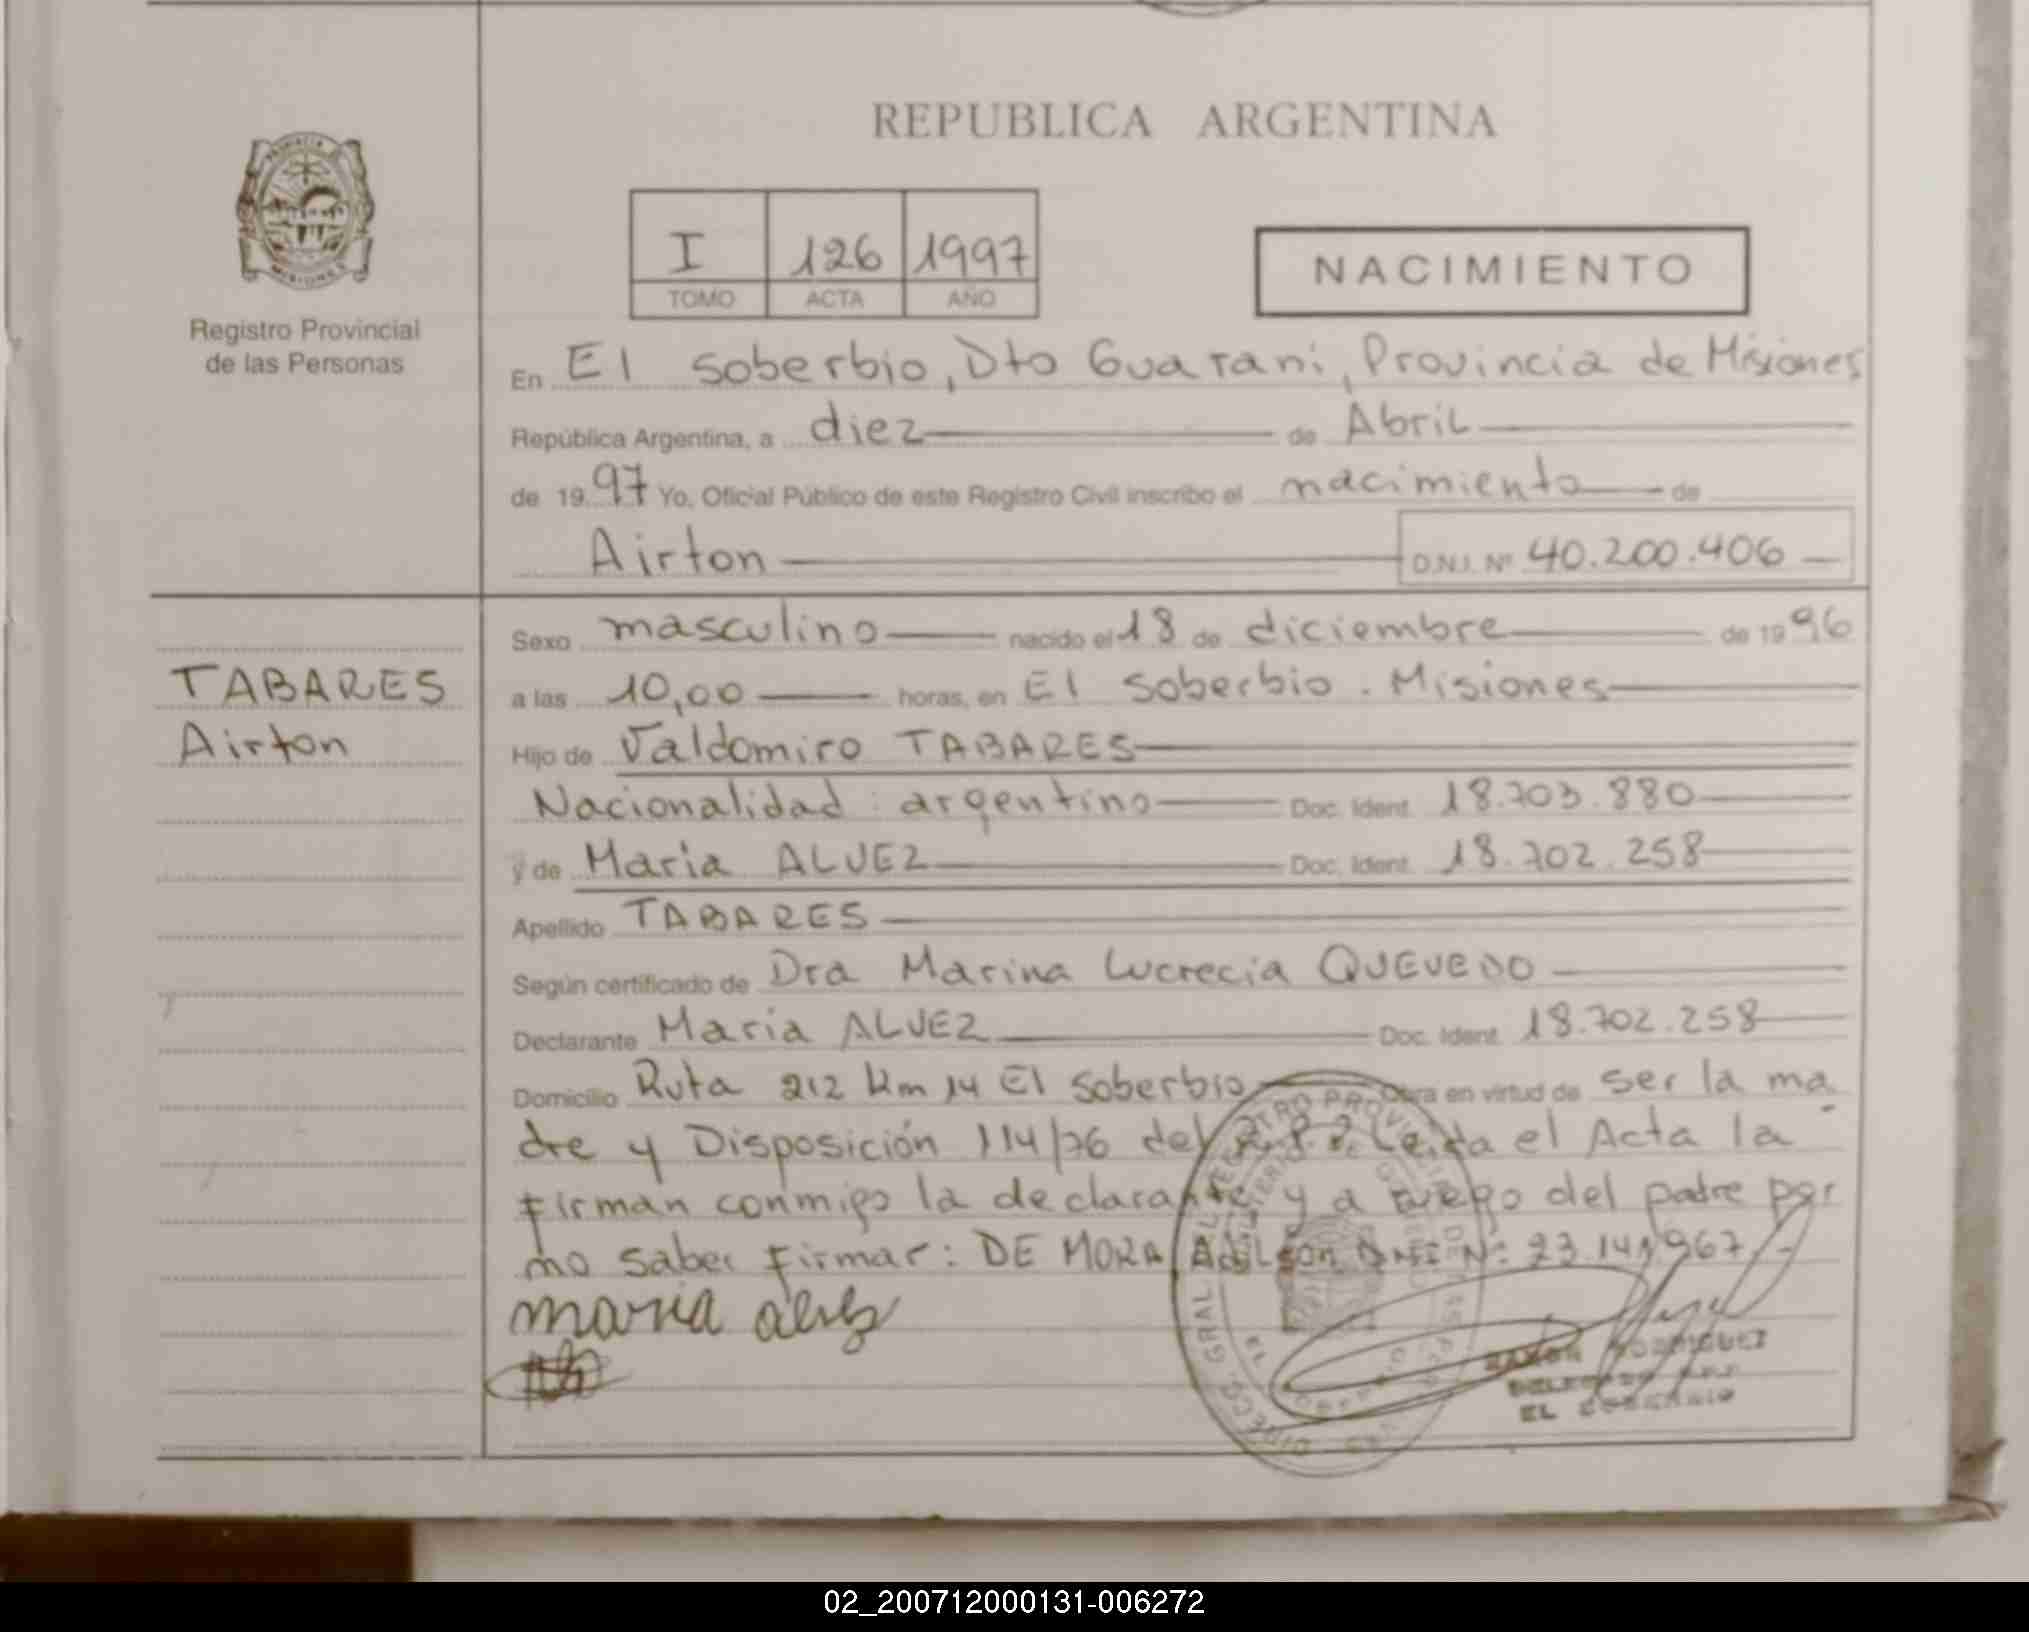 REPUBLICA ARGENTINA
PROVINCIA
MISIONES
Registro Provincial
de las Personas
I 126 1997
TOMO ACTA AÑO
NACIMIENTO
En El Soberbio, Dto Guarani, Provincia de Misiones
República Argentina, a diez de Abril
de 1997 Yo, Oficial Público de este Registro Civil inscribo el nacimiento de
Airton D.N.I. Nº 40.200.406
TABARES
Airton
Sexo masculino nacido el 18 de diciembre de 1996
a las 10,00 horas, en El Soberbio. Misiones
Hijo de Valdomiro TABARES
Nacionalidad: argentino Doc. Ident. 18.703.880
y de Maria ALVEZ Doc. Ident. 18.702.258
Apellido TABARES
Según certificado de Dra Marina Lucrecia QUEVEDO
Declarante Maria ALVEZ Doc. Ident. 18.702.258
Domicilio Ruta 212 Km 14 El Soberbio Obra en virtud de ser la ma
dre y Disposición 114/76 del Leida el Acta la
firman conmigo la declarante y a ruego del padre por
no saber firmar: DE MORA Adilson DNI Nº: 23.141.967.-
maria
RAMON RODRIGUEZ
DELEGADO
EL SOBERBIO
02_200712000131-006272